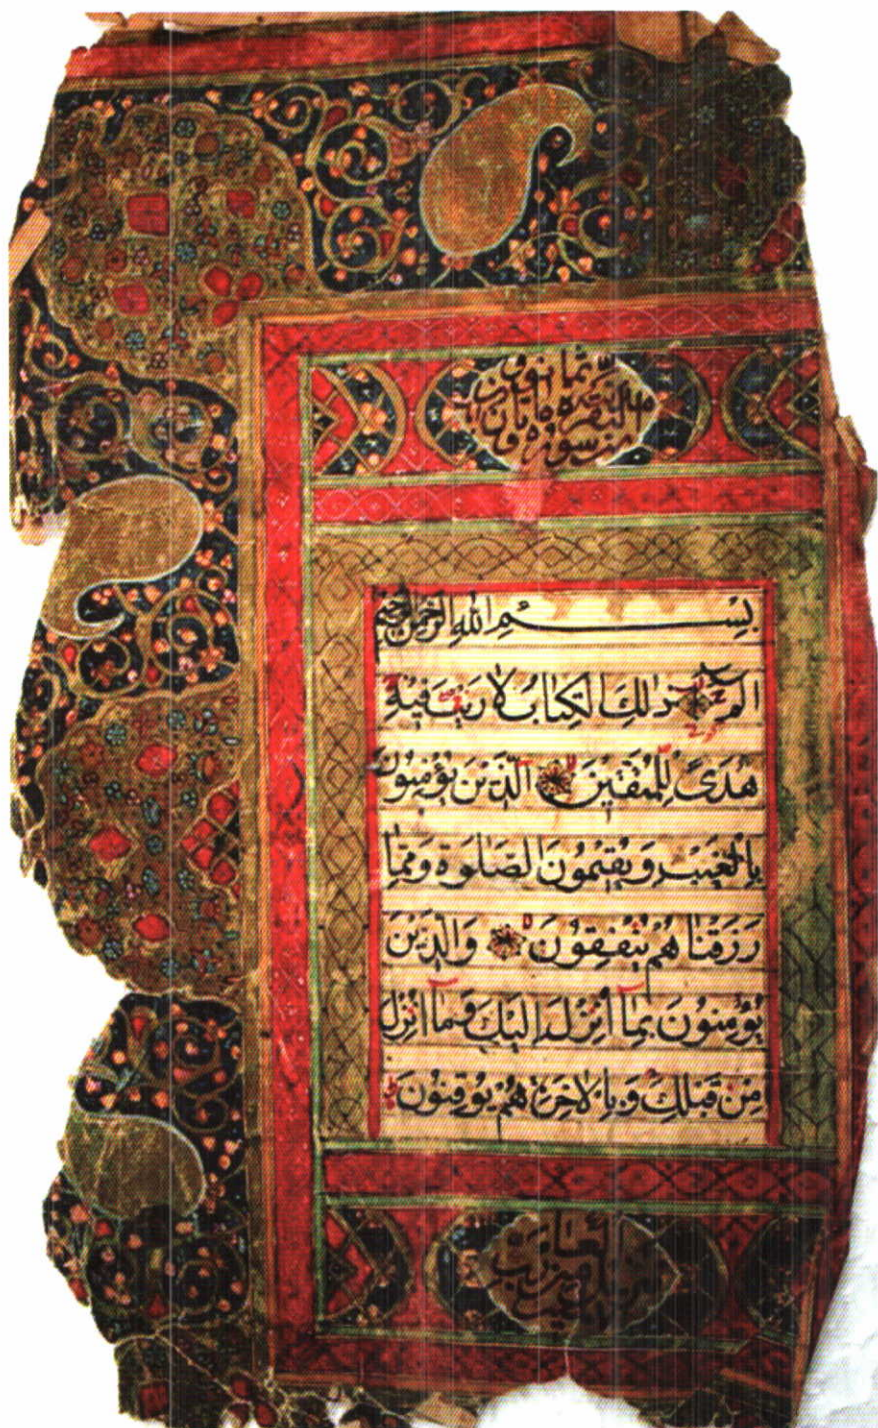 سورة البقرة مايتان وثمانون
بِسْمِ اللهِ الرَّحْمٰنِ الرَّحِيْمِ
الم ذٰلِكَ الْكِتَابُ لَا رَيْبَ فِيْهِ
هُدًى لِلْمُتَّقِيْنَ الَّذِيْنَ يُؤْمِنُوْنَ
بِالْغَيْبِ وَيُقِيْمُوْنَ الصَّلَاوةَ وَمِمَّا
رَزَقْنَاهُمْ يُنْفِقُوْنَ وَالَّذِيْنَ
يُؤْمِنُوْنَ بِمَآ اُنْزِلَ اِلَيْكَ وَمَآ اُنْزِلَ
مِنْ قَبْلِكَ وَبِالْاٰخِرَةِ هُمْ يُوْقِنُوْنَ